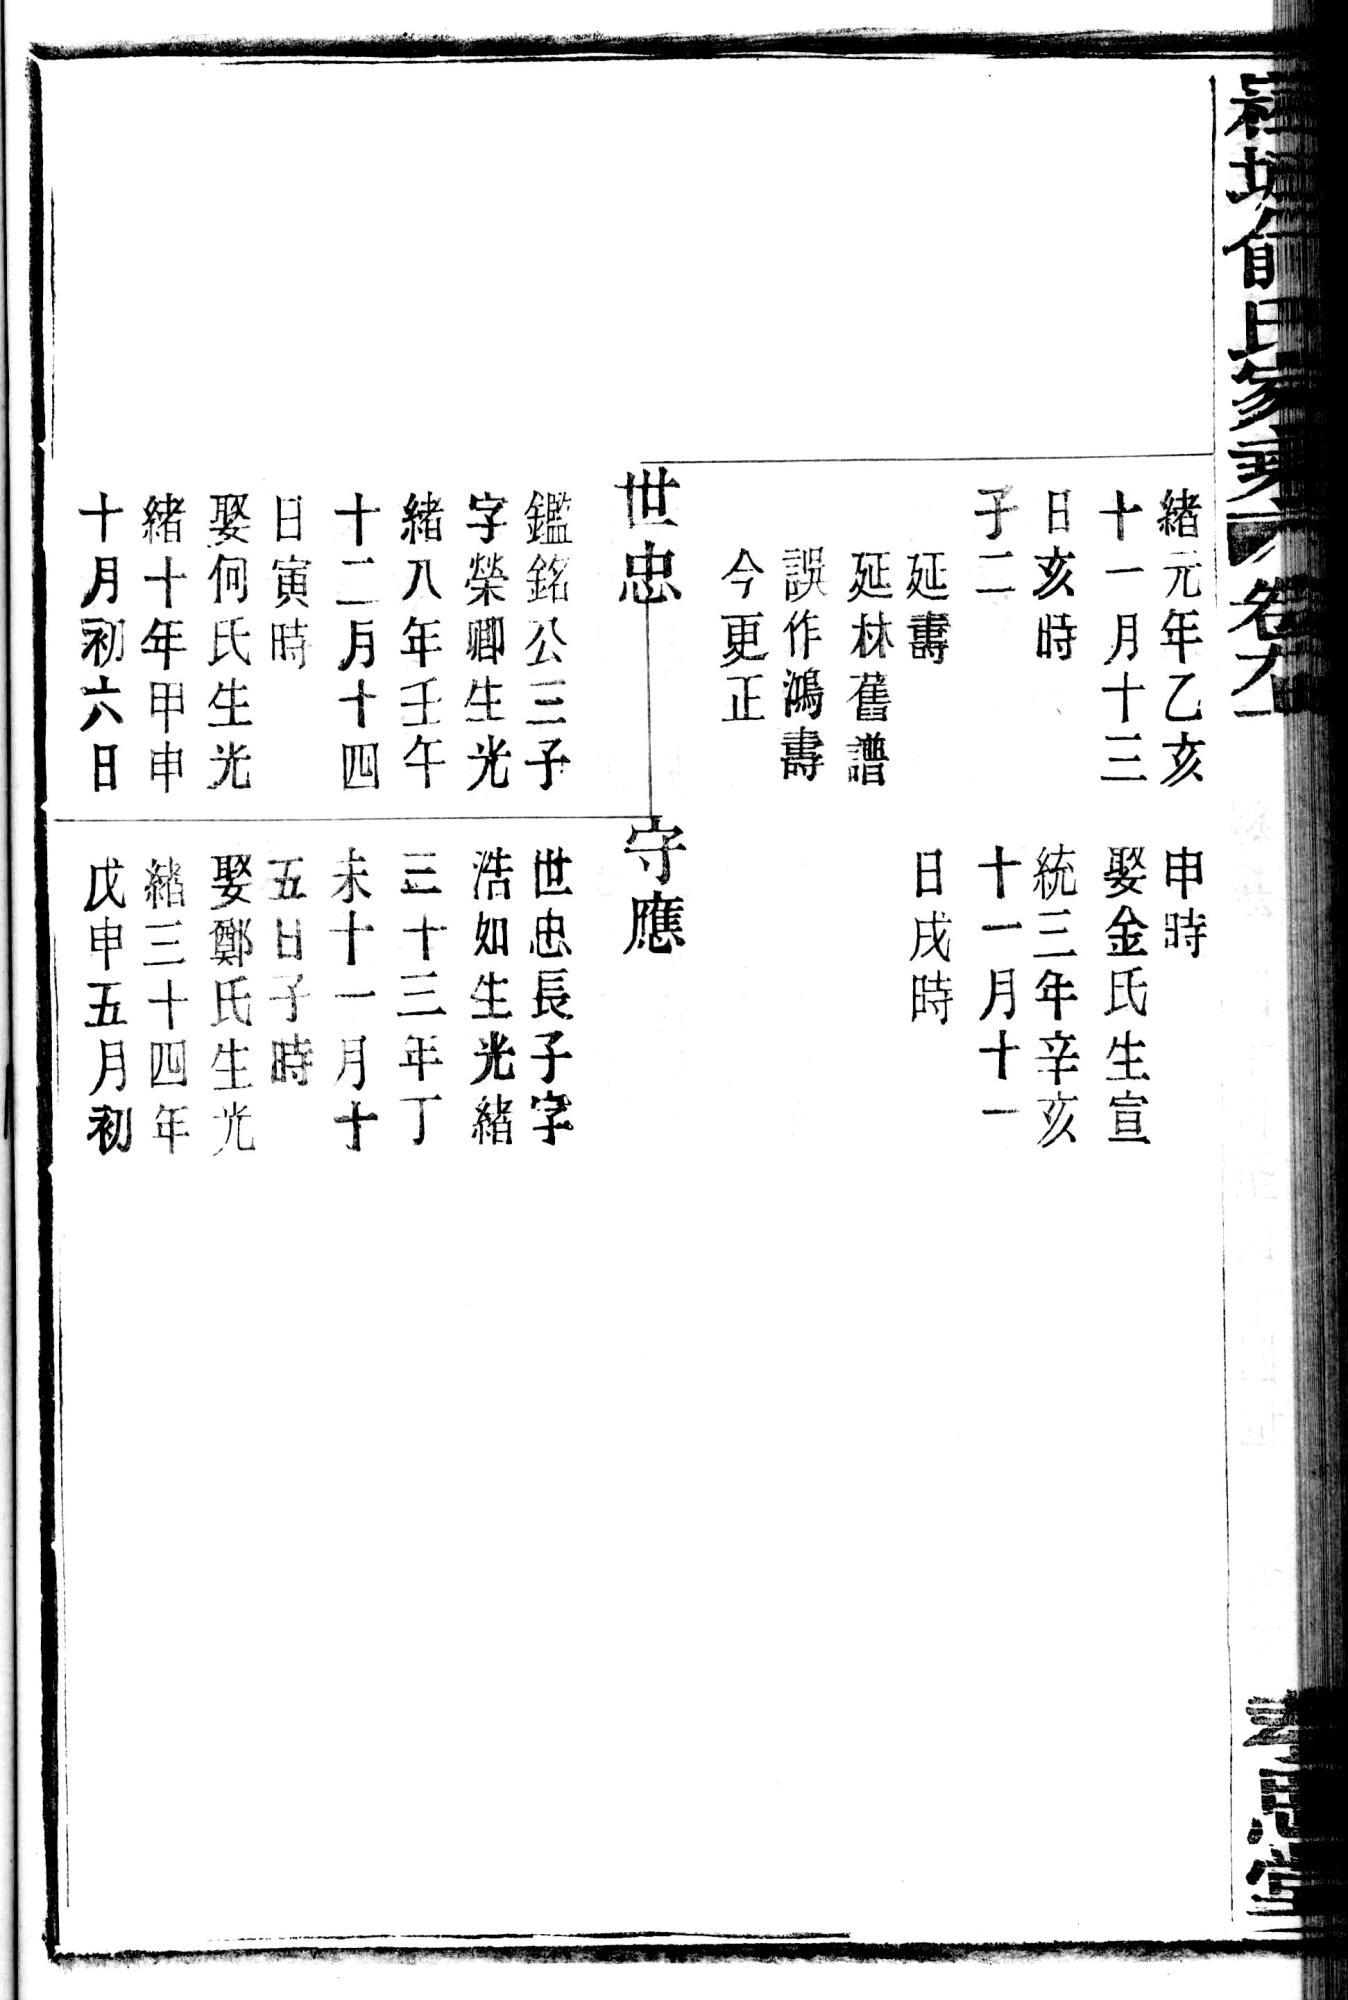 俞氏家乘
卷九
緒元年乙亥
十一月十三
日亥時
子二
延壽
延林舊譜
誤作鴻壽
今更正
申時
娶金氏生宣
統三年辛亥
十一月十一
日戌時
世忠
鑑銘公三子
字榮卿生光
緒八年壬午
十二月十四
日寅時
娶何氏生光
緒十年甲申
十月初六日
守應
世忠長子字
浩如生光緒
三十三年丁
未十一月十
五日子時
娶鄭氏生光
緒三十四年
戊申五月初
孝思堂